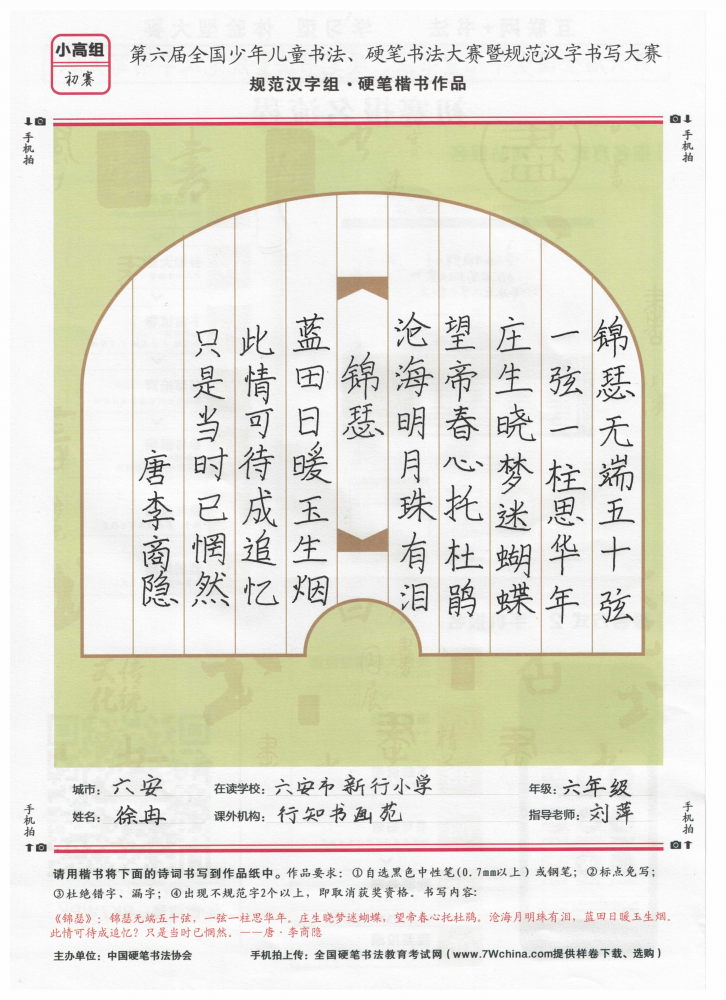 小高组
初赛
第六届全国少年儿童书法、硬笔书法大赛暨规范汉字书写大赛
规范汉字组·硬笔楷书作品
手机拍
手机拍
锦瑟无端五十弦
一弦一柱思华年
庄生晓梦迷蝴蝶
望帝春心托杜鹃
沧海明月珠有泪
锦瑟
蓝田日暖玉生烟
此情可待成追忆
只是当时已惘然
唐李商隐
城市：六安 在读学校：六安市新行小学 年级：六年级
姓名：徐冉 课外机构：行知书画苑 指导老师：刘萍
手机拍
手机拍
请用楷书将下面的诗词书写到作品纸中。作品要求：①自选黑色中性笔(0.7mm以上）或钢笔；②标点免写；
③杜绝错字、漏字；④出现不规范字2个以上，即取消获奖资格。书写内容：
《锦瑟》：锦瑟无端五十弦，一弦一柱思华年。庄生晓梦迷蝴蝶，望帝春心托杜鹃。沧海月明珠有泪，蓝田日暖玉生烟。
此情可待成追忆？只是当时已惘然。——唐·李商隐
主办单位：中国硬笔书法协会 手机拍上传：全国硬笔书法教育考试网（www.7Wchina.com提供样卷下载、选购）